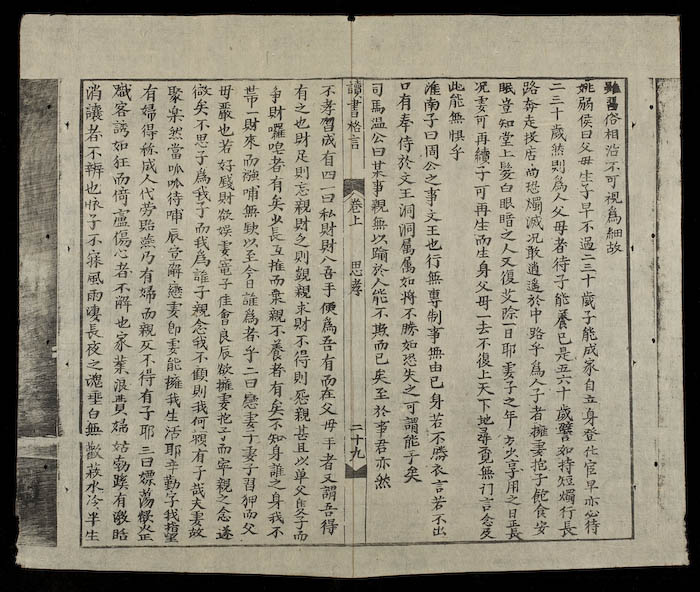 雖習俗相沿不可視為細故
姚弱侯曰父母生子早不過二三十歲子能成家自立身登仕宦早亦必待
二三十歲然則為人父母者待子能養已是五六十歲譬如持短燭行長
路奔走投店尚恐燭滅况敢逍遙於中路乎為人子者擁妻抱子飽食安
眠豈知堂上髮白眼暗之人又復艾除一日耶妻子之年方火享用之日正長
况妻可再續子可再生而生身父母一去不復上天下地尋覓無門言念及
此能無惧乎
淮南子曰周公之事文王也行無專制事無由己身若不勝衣言若不出
口有奉侍於文王洞洞属属如將不勝如恐失之可謂能子矣
司馬温公曰某事親無以踰於人能不欺而已矣至於事君亦然
讀書格言 卷上 思孝 二十九
不孝習成有四一曰私財財入吾手便為吾有而在父母手者又謂吾得
有之也財足則忘親財乏則覬親求財不得則怨親甚且以單父隻子而
爭財囉唣者有矣少長互推而棄親不養者有矣不知身誰之身我不
帶一財來而襁哺無缺以至今日誰為者乎二曰戀妻子妻子習狎而父
母嚴也若好錢財欲娱妻竉子佳會良辰欲擁妻抱子而寧親之念遂
微矣不思子為我子而我為誰子親念我不顧則我何頼有子哉夫妻故
聚樂然當呱呱待哺辰豈解戀妻即妻能擁我生活耶辛勤字我指望
有婦得稱成人代劳貽燕乃有婦而親反不得有子耶三曰嫖荡欲火正
熾客謫如狂而倚廬傷心者不解也家業浪費婦姑勃蹊有激唔
消讓者不辨也悵子不寐風雨凄長夜之魂垂白無歡菽水冷半生